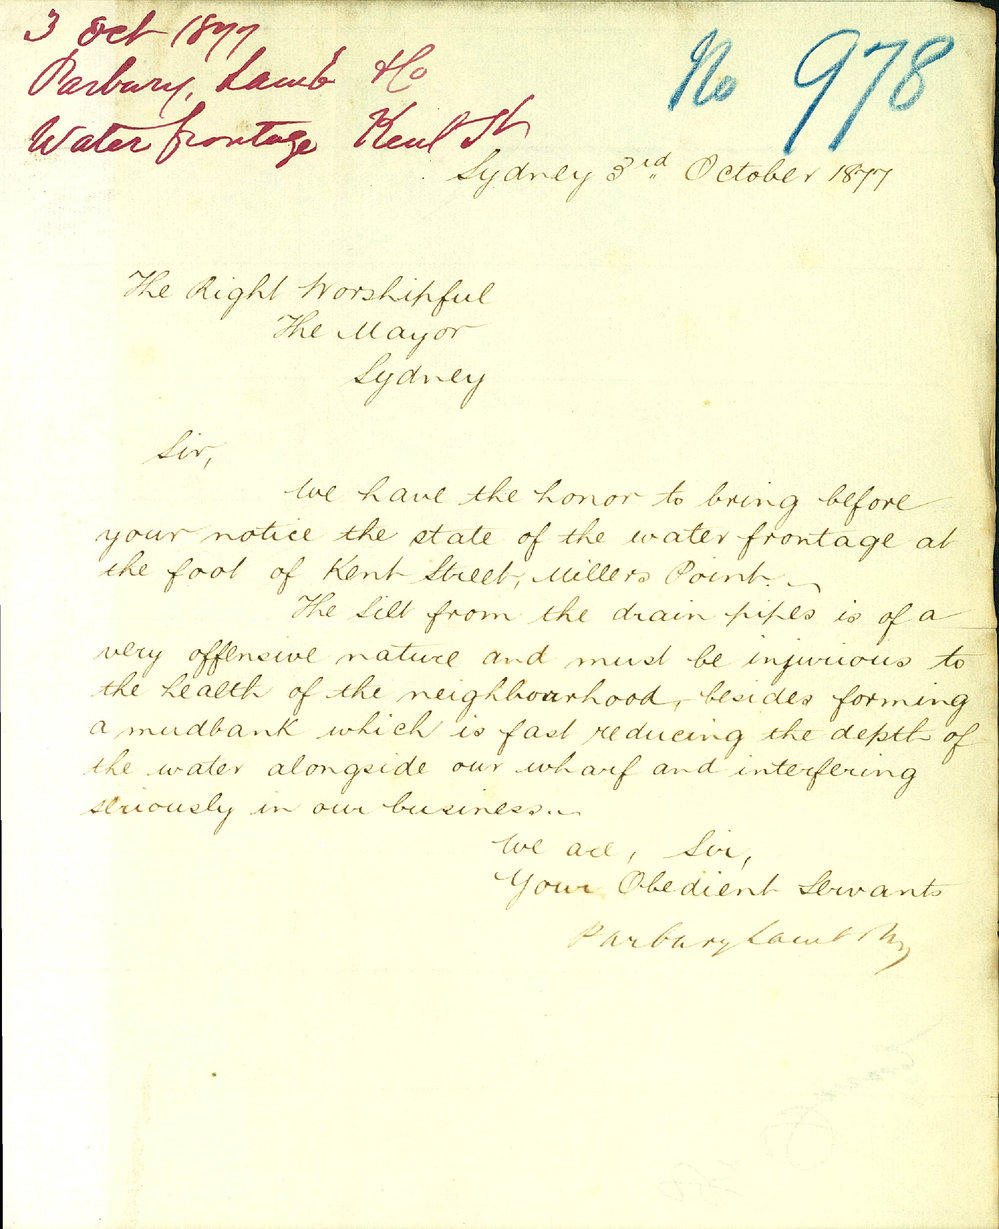 3 Oct 1877
Parbury, Lamb & Co
Water frontage Kent St
No 978
Sydney 3rd October 1877
The Right Worshipful
The Mayor
Sydney
Sir,
We have the honor to bring before
your notice the state of the water frontage at
the foot of Kent Street, Millers Point.
The Silt from the drain pipes is of a
very offensive nature and must be injurious to
the health of the neighbourhood, besides forming
a mudbank which is fast reducing the depth of
the water alongside our wharf and interfering
seriously in our business.
We are, Sir,
Your Obedient Servants
Parbury Lamb & Co